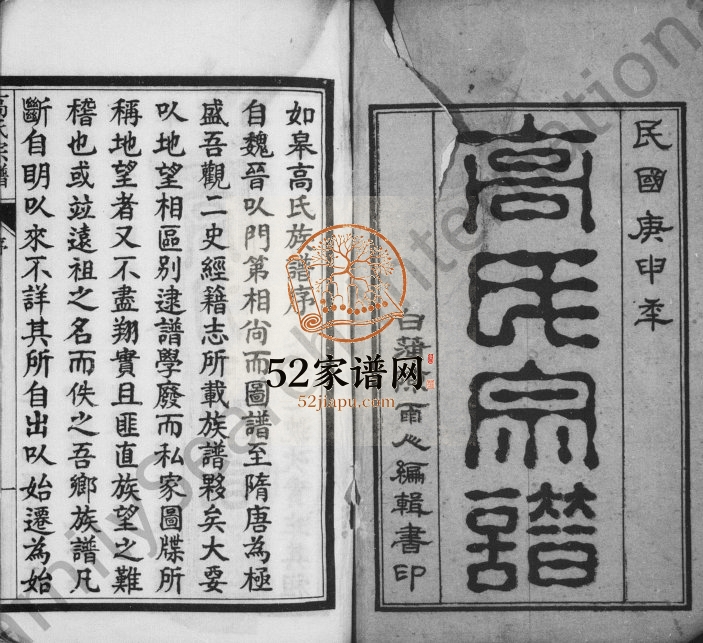 民國庚申年
高氏宗譜
白蒲
雨心編輯書印
如皋高氏族譜序
自魏晉以門第相尙而圖譜至隋唐為極
盛吾觀二史經籍志所載族譜夥矣大要
以地望相區別逮譜學廢而私家圖牒所
稱地望者又不盡翔實且匪直族望之難
稽也或竝遠祖之名而佚之吾鄉族譜凡
斷自明以來不詳其所自出以始遷為始
高氏宗譜
序
一
52家谱网
52jiapu.com
FamilySearch International